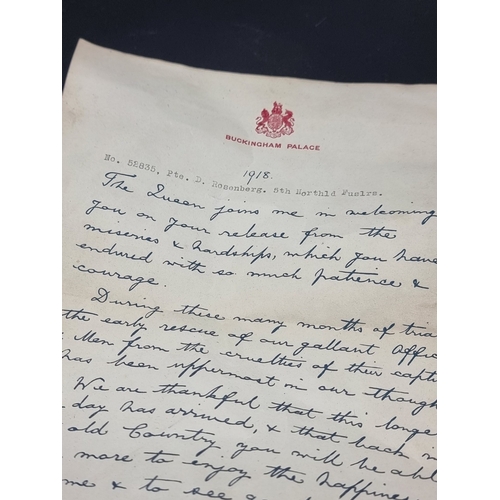 BUCKINGHAM PALACE
1918.
No. 52835, Pte. D. Rosenberg. 5th Northld Fuslrs.
The Queen joins me in welcoming
you on your release from the
miseries & hardships, which you have
endured with so much patience &
courage.
During these many months of tria
the early rescue of our gallant Offic
Men from the cruelties of their capti
has been uppermost in our though
We are thankful that this longe
day has arrived, & that back in
old Country you will be abl
more to enjoy the happine
me & to see a